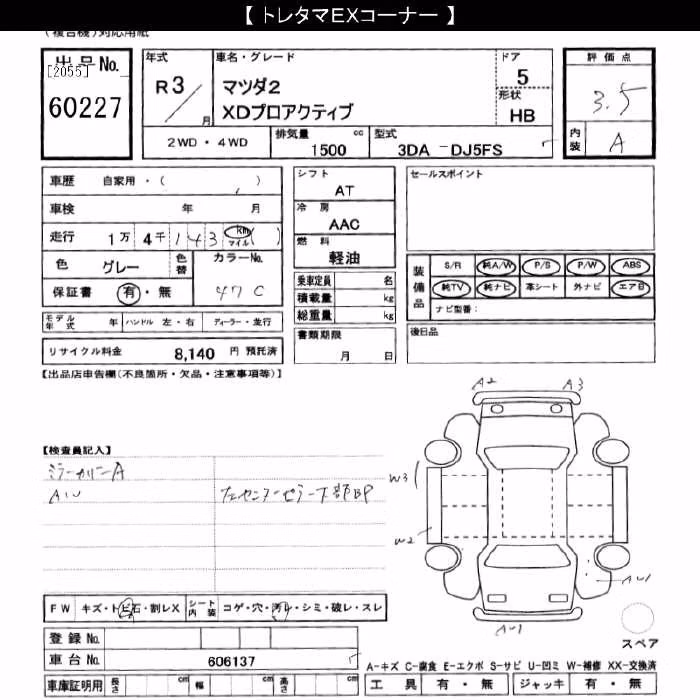 【 トレタマEXコーナー 】
(複合機)対応用紙
出品No.
[2055]
60227
年式
R 3 / 月
車名・グレード
マツダ2
XDプロアクティブ
ドア
5
形状
HB
評価点
3.5
内装
A
2WD・4WD
排気量 1500 cc
型式 3DA -DJ5FS
車歴 自家用・( )
車検 年 月
走行 1万 4千 143 km マイル ( )
色 グレー
色替
カラーNo.
47C
保証書 有・無
モデル年式 年
ハンドル 左・右
ディーラー・並行
リサイクル料金 8,140 円 預託済
シフト
AT
冷房
AAC
燃料
軽油
乗車定員 名
積載量 kg
総重量 kg
書類期限
月 日
セールスポイント
装備品
S/R 純A/W P/S P/W ABS
純TV 純ナビ 革シート 外ナビ エアB
ナビ型番:
後日品
【出品店申告欄(不良箇所・欠品・注意事項等)】
【検査員記入】
ミラーカバーA
AW
A2
A3
W3
W2
AW1
AW1
スペア
FW キズ・トビ石・割レX
シート内装 コゲ・穴・汚レ・シミ・破レ・スレ
登録No.
車台No. 606137
車庫証明用 長さ cm 幅 cm 高さ cm
A-キズ C-腐食 E-エクボ S-サビ U-凹ミ W-補修 XX-交換済
工具 有・無 ジャッキ 有・無